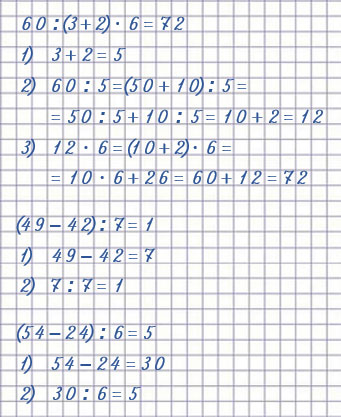 60:(3+2)·6=72
1) 3+2=5
2) 60:5=(50+10):5=
=50:5+10:5=10+2=12
3) 12·6=(10+2)·6=
=10·6+26=60+12=72
(49-42):7=1
1) 49-42=7
2) 7:7=1
(54-24):6=5
1) 54-24=30
2) 30:6=5